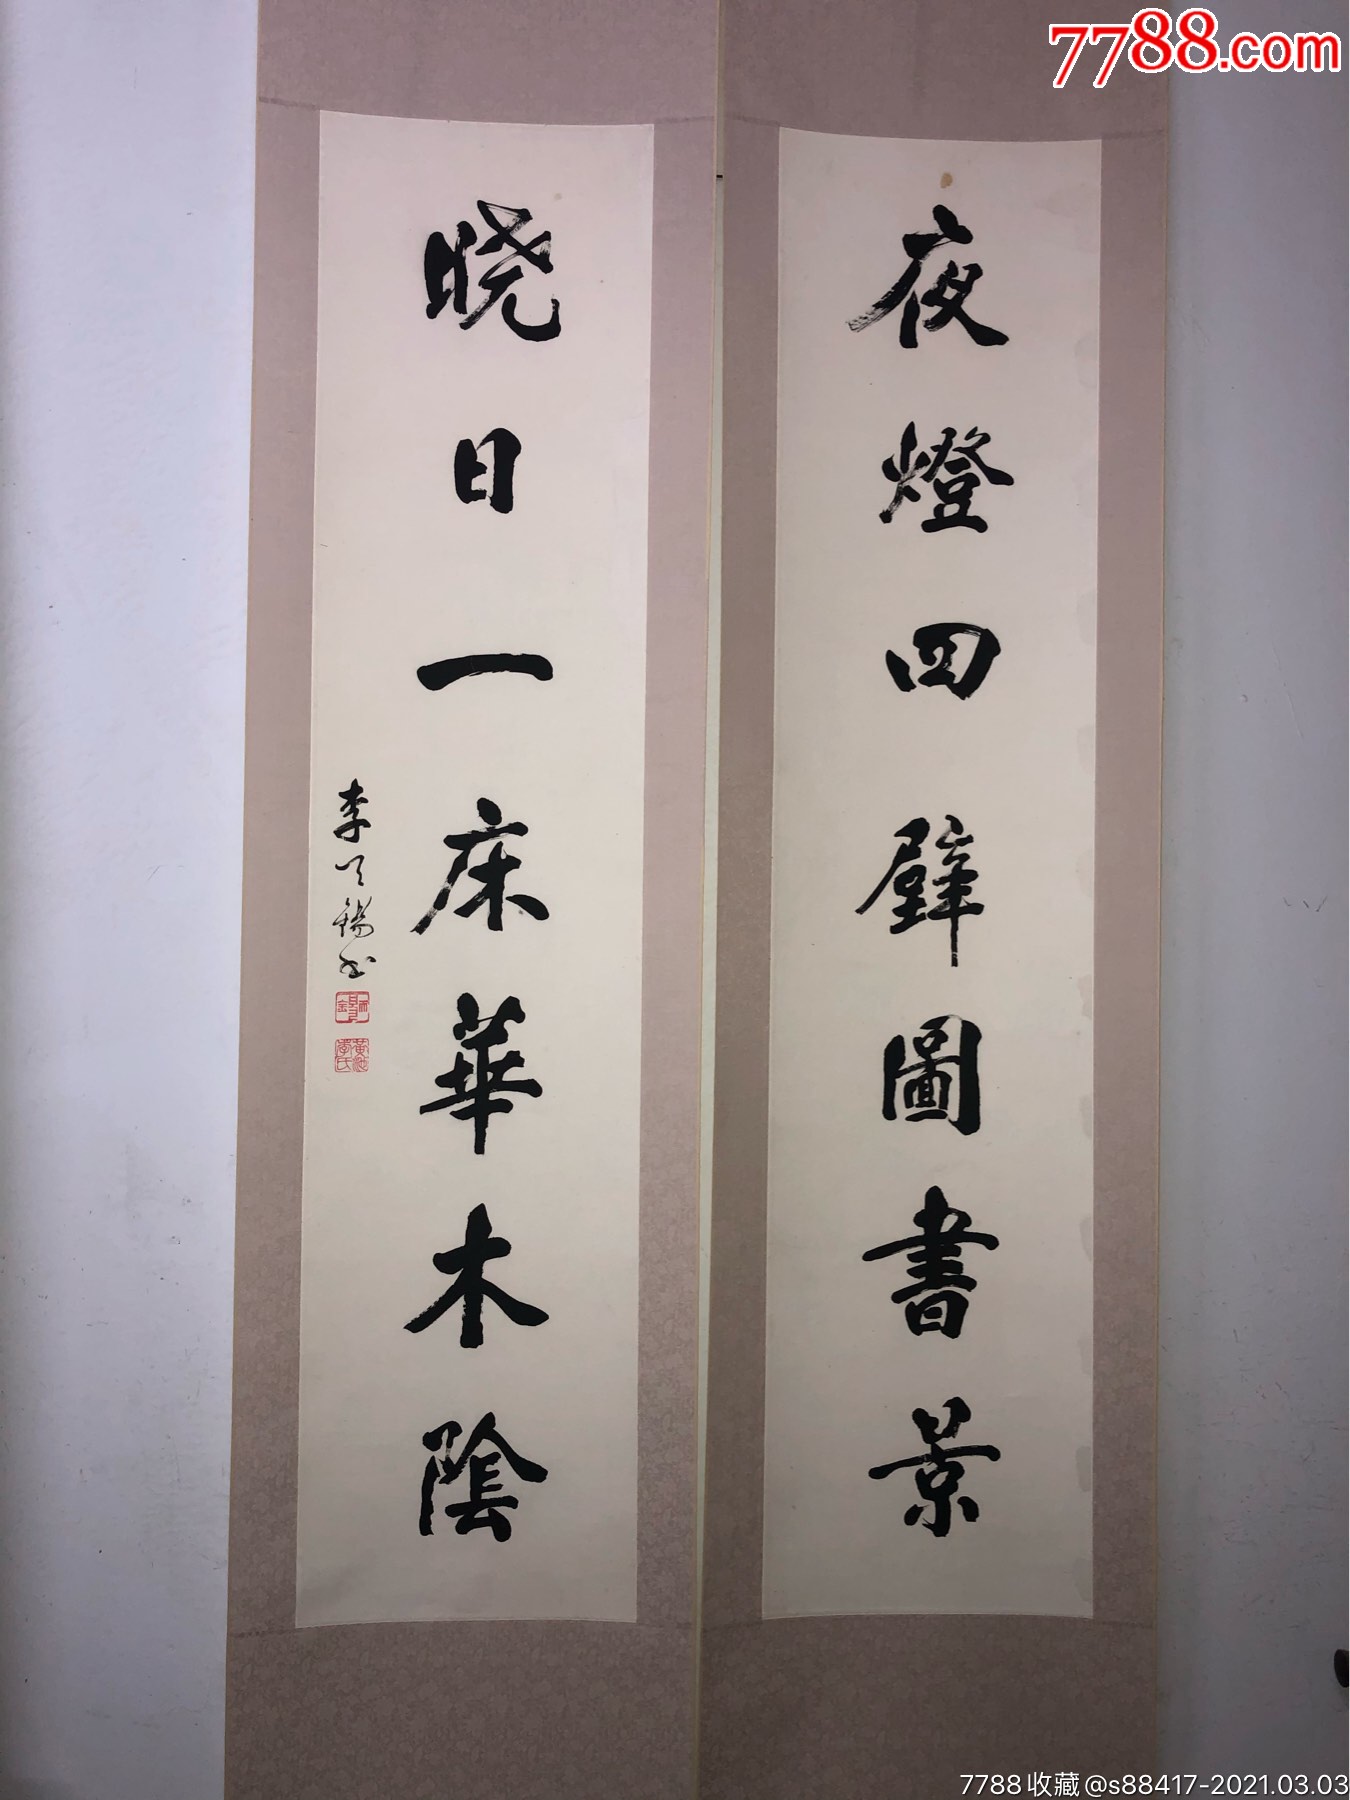 7788.com
夜燈四壁圖書景
晓日一床華木陰
李天錫书
黄池李氏
7788收藏@s88417-2021.03.03